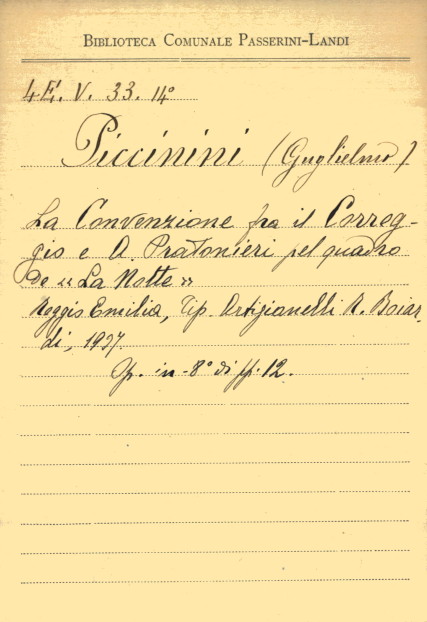 BIBLIOTECA COMUNALE PASSERINI-LANDI
4E. V. 33. 14°
Piccinini (Guglielmo)
La Convenzione fra il Correg-
gio e A. Pratonieri pel quadro
de « La Notte »
Reggio Emilia, Tip. Artigianelli A. Boiar
di, 1937
Op. in-8° di pp. 12.